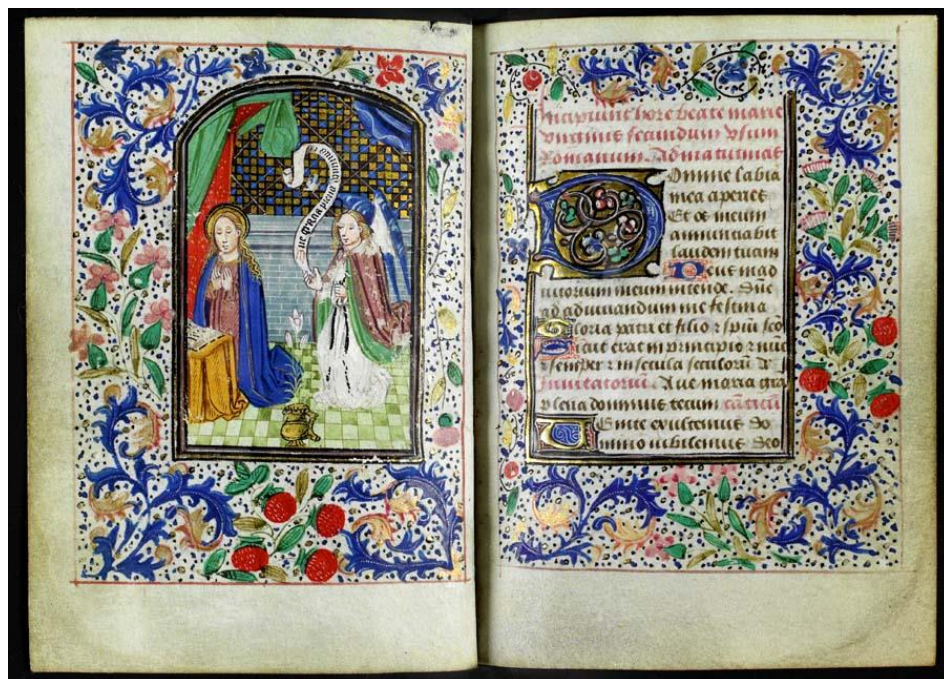 aue gracia plena dominus te
Incipiunt hore beate marie
virginis secundum usum
Romanum. Ad matutinas
Domine labia
mea aperies
Et os meum
annunciabit
laudem tuam
Deus in ad
iutorium meum intende. Dñe
ad adiuvandum me festina
Gloria patri et filio ⁊ spiū sco
Sicut erat in principio ⁊ nūc
⁊ semper ⁊ in secula seculorū
Invitatoriū. Aue maria gra
plena dominus tecum
Venite exultemus do
mino iubilemus deo